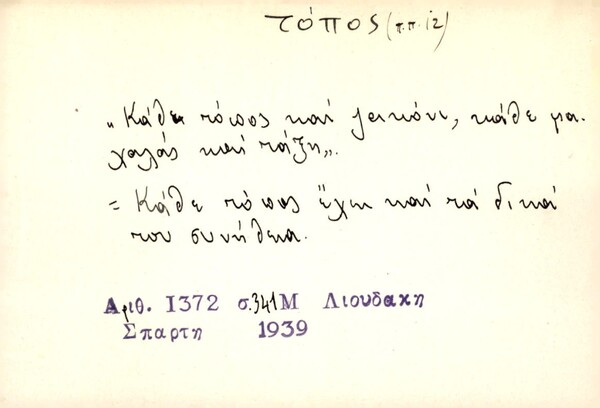 τόπος (π.π. 12)
„Κάθε τόπος καί ζακόνι, κάθε μα-
χαλάς καί τάξη„.
= Κάθε τόπος ἔχει καί τά δικά
του συνήθεια.
Αριθ. 1372 σ. 341 Μ Λιουδακη
Σπαρτη 1939